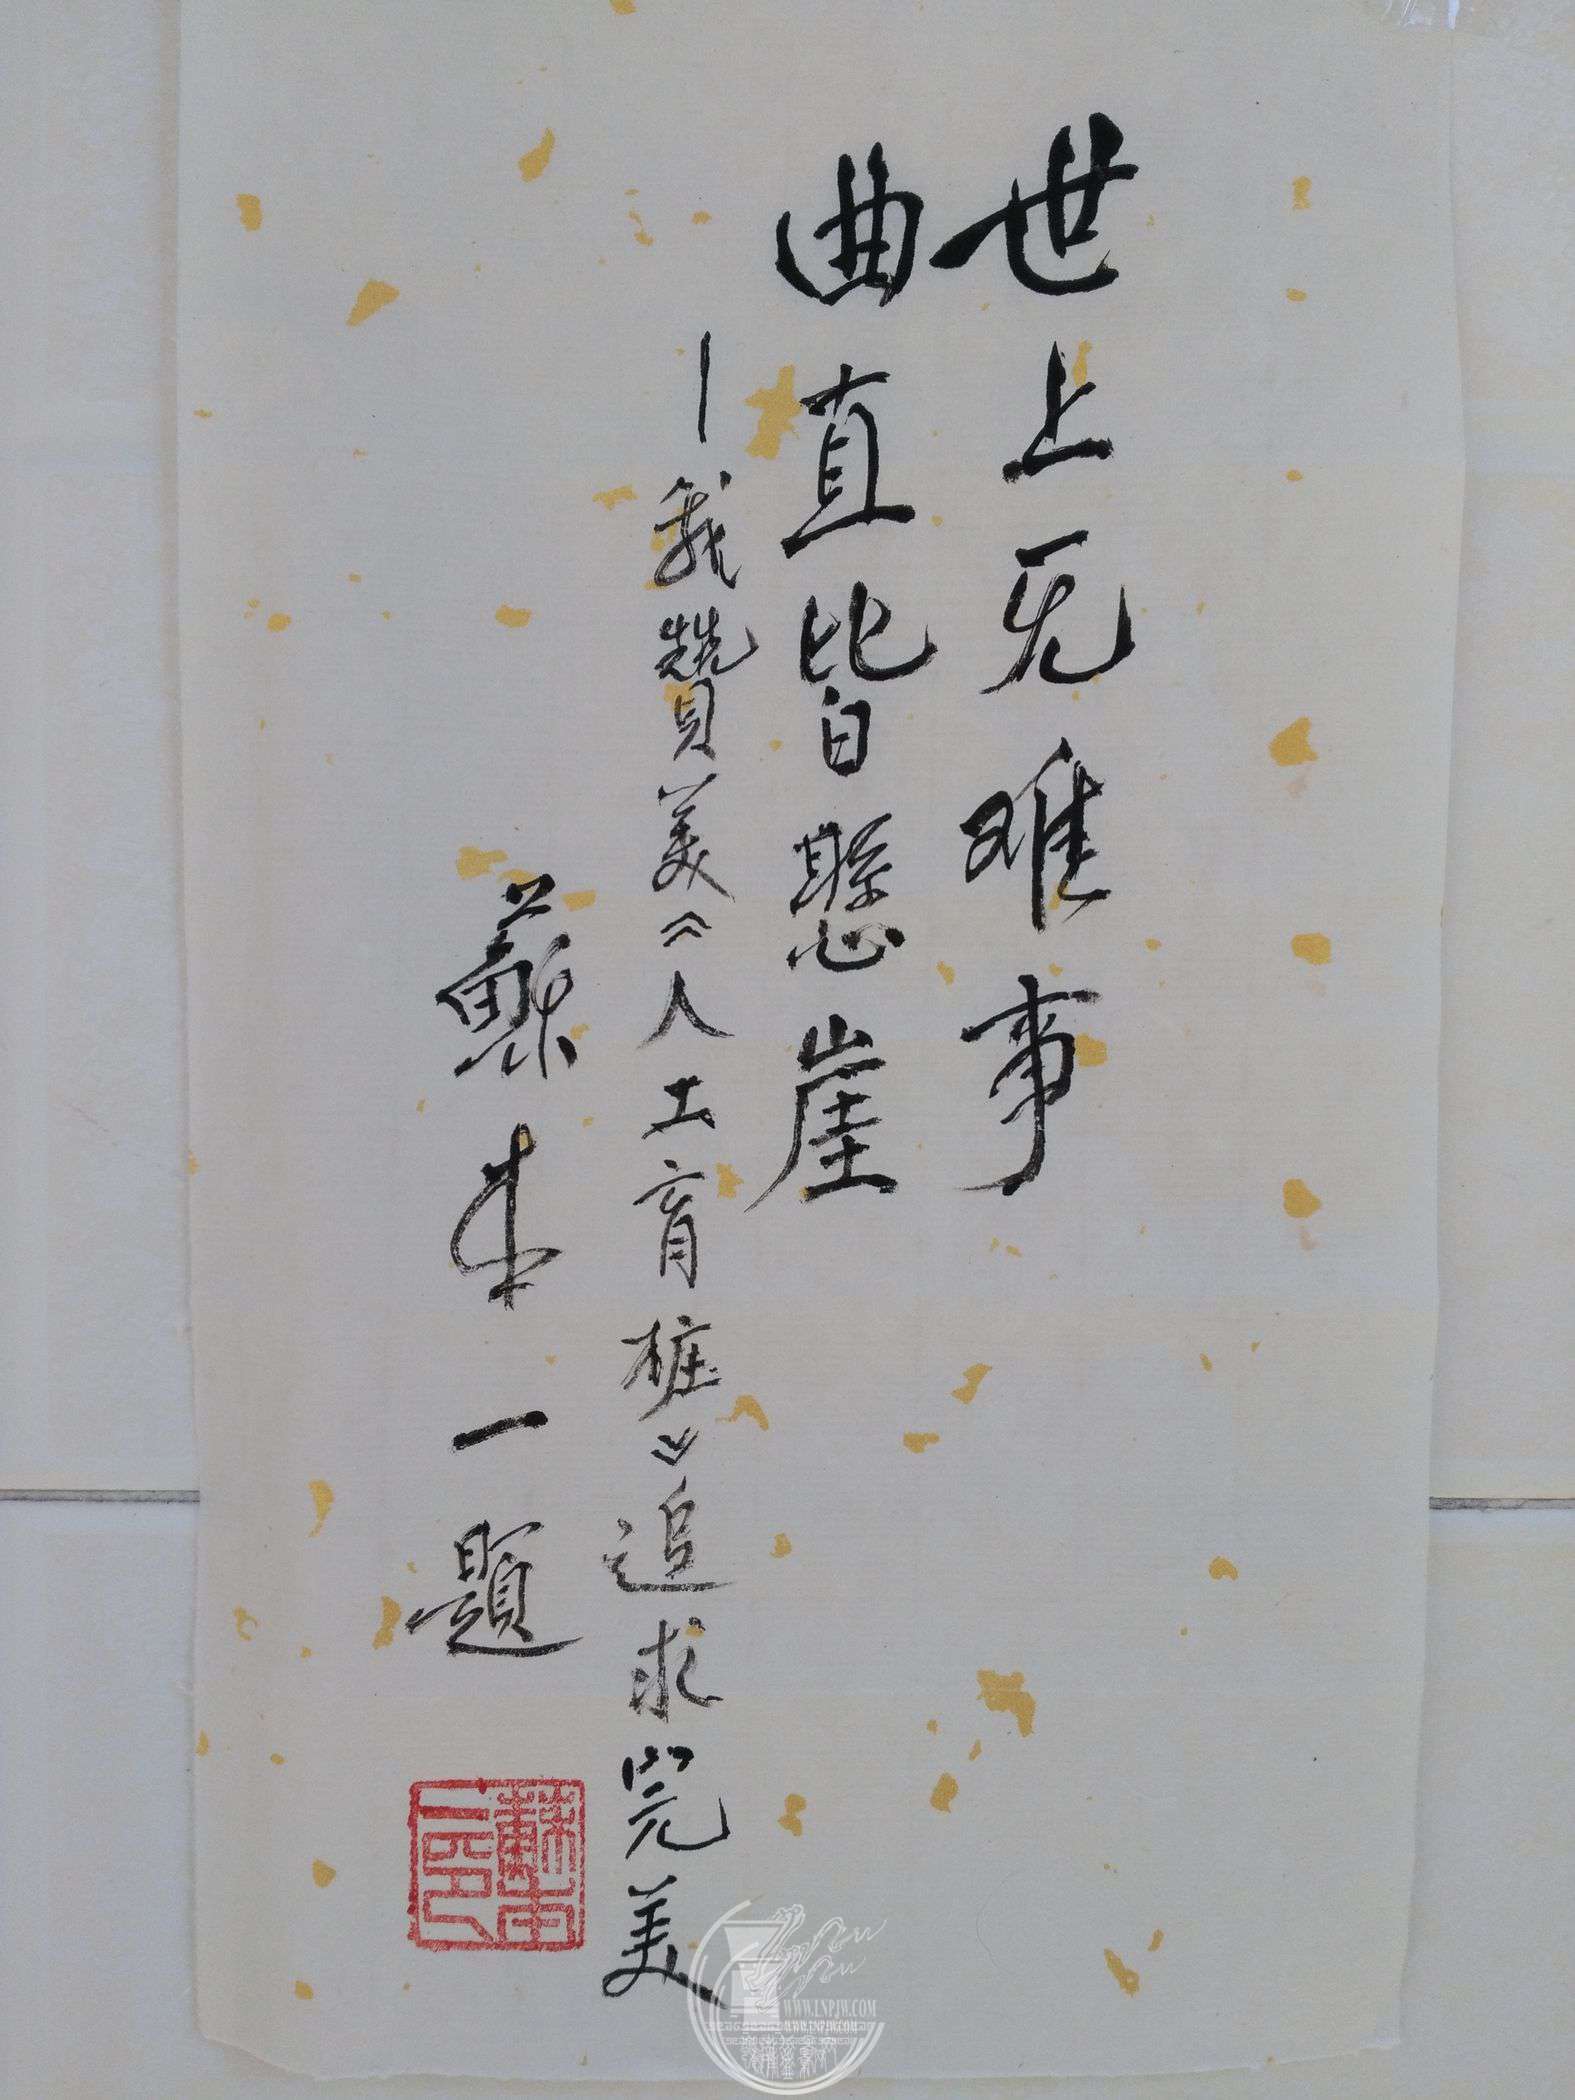 世上无难事
曲直皆懸崖
—我贊美《人工育樁》追求完美
蘇本一題
蘇本一印
WWW.LNPJW.COM
WWW.LNPJW.COM